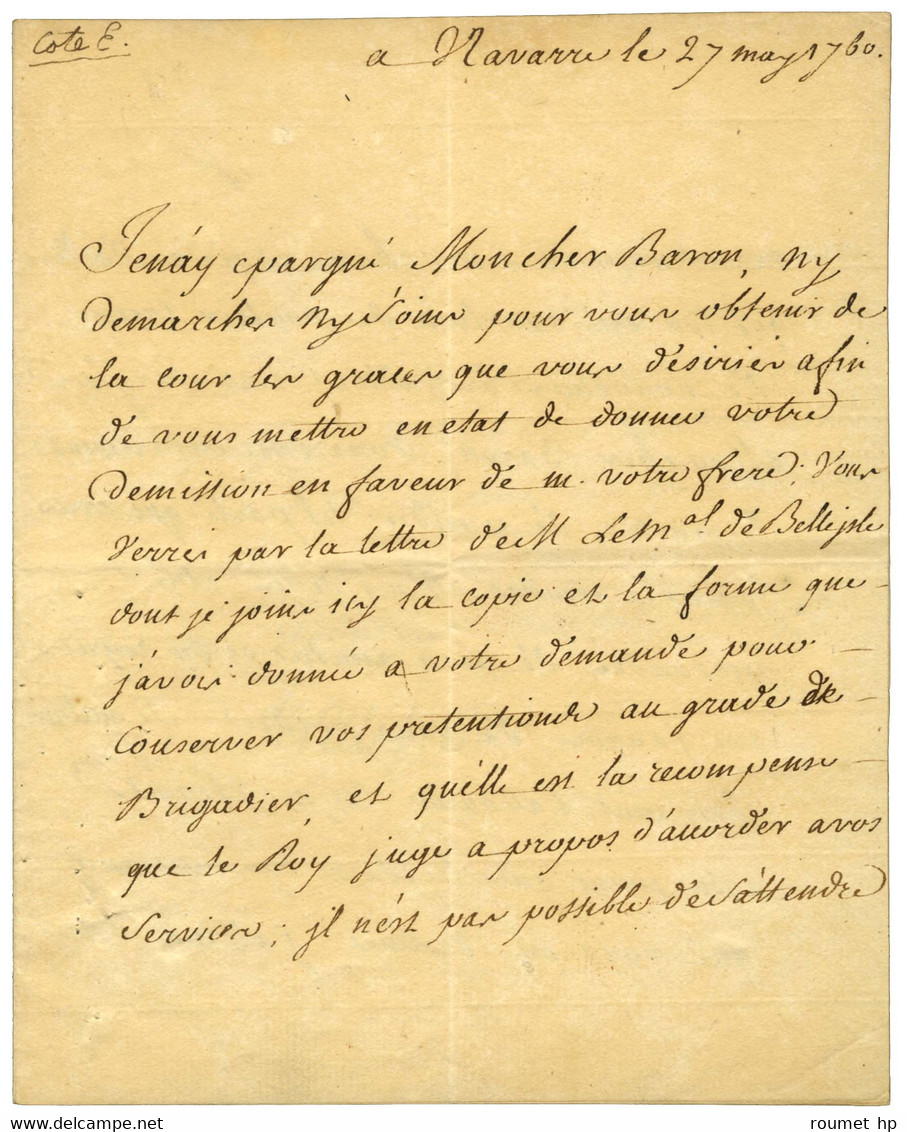 Cote E.
a Navarre le 27 may 1760.
Jenáy epargné Moncher Baron, ny
demarches ny Soins pour vous obtenir de
la cour les graces que vous désiriés afin
de vous mettre en etat de donner votre
demission en faveur de m. votre frere. Vous
verrés par la lettre de M Le M.al de Bellisle
dont je joins icy la copie et la forme que
j'avois donnée a votre demande pour
Conserver vos pretentions au grade de
Brigadier, et quélle est la recompense
que le Roy juge a propos d'accorder a vos
Services; jl nést pas possible de S'attendre
roumet hp